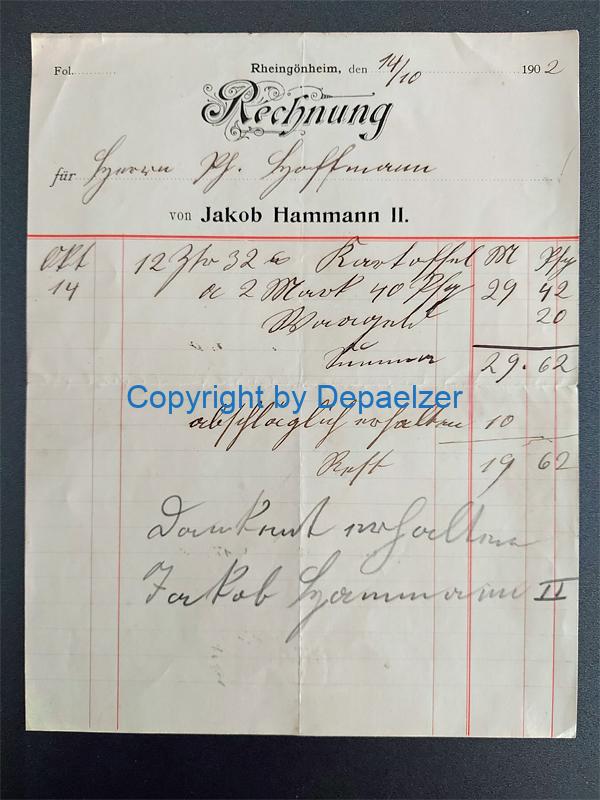 Fol. Rheingönheim, den 14/10 1902
Rechnung
für Herrn Ph. Hoffmann
von Jakob Hammann II.
Okt 12 Ztr 32 Kartoffel M Pfg
14 a 2 Mark 40 Pfg 29 42
Waageld 20
Summa 29.62
Copyright by Depaelzer
abschläglich erhalten 10
Rest 19 62
Dankend erhalten
Jakob Hammann II